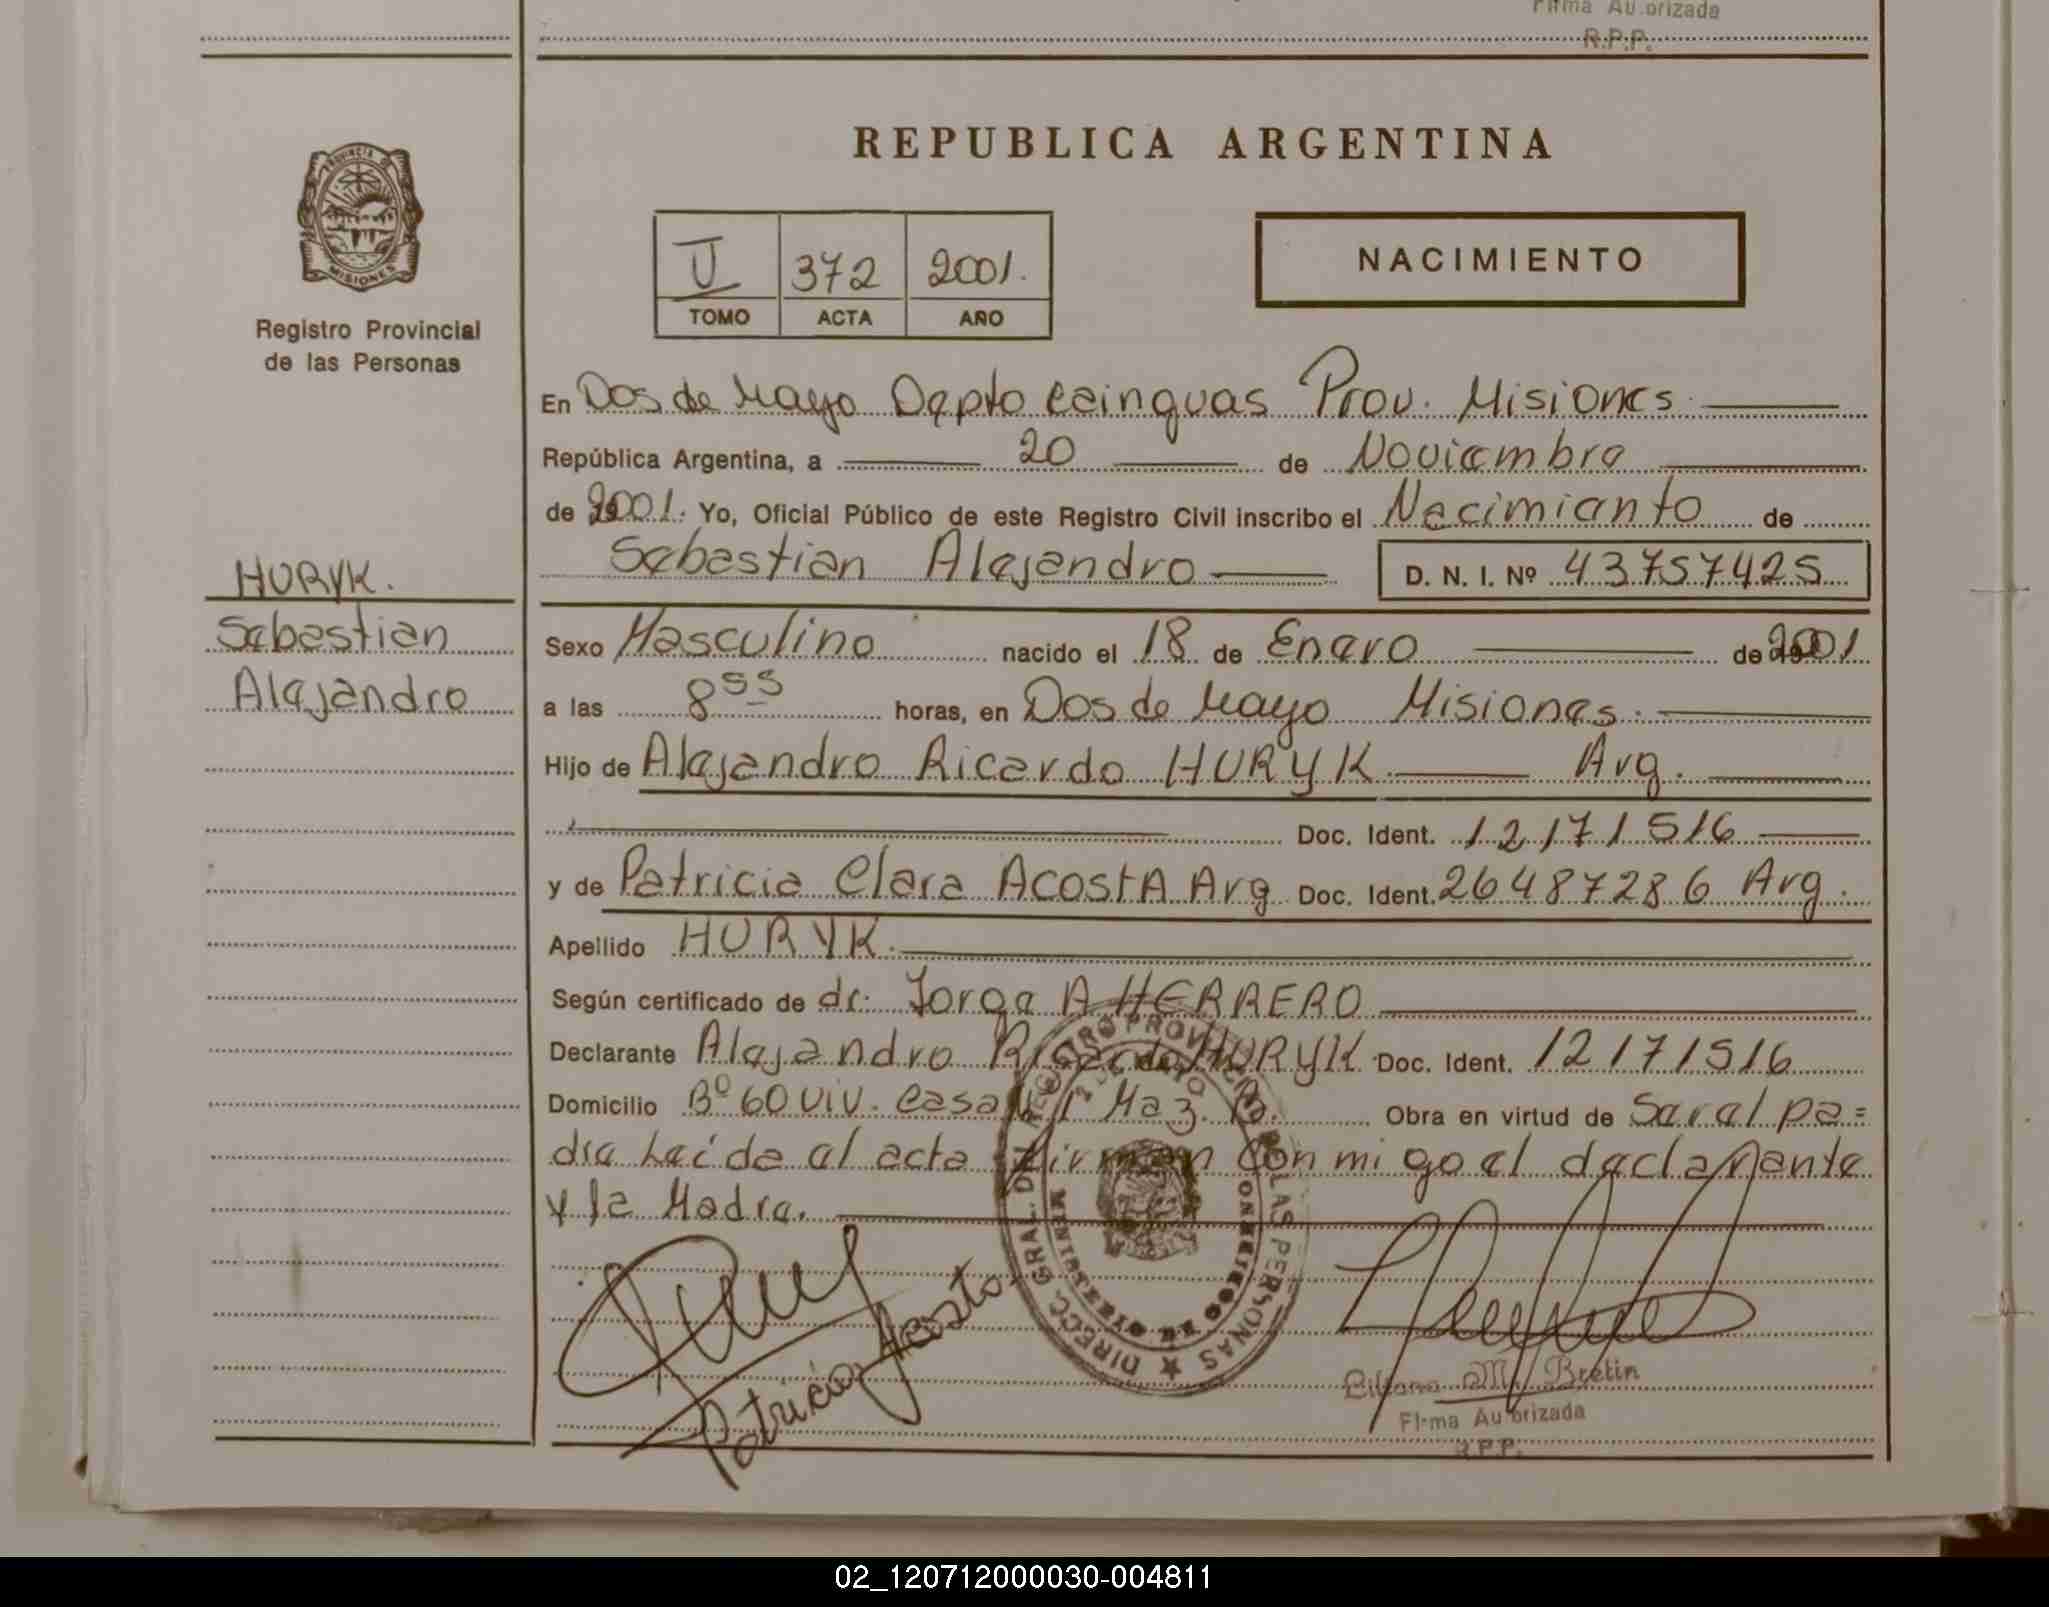 Firma Autorizada
R.P.P.
REPUBLICA ARGENTINA
PROVINCIA DE MISIONES
Registro Provincial
de las Personas
II 372 2001.
TOMO ACTA AÑO
NACIMIENTO
En Dos de Mayo Depto Cainguas Prov. Misiones
República Argentina, a 20 de Noviembre
de 2001. Yo, Oficial Público de este Registro Civil inscribo el Nacimiento de
Sebastian Alejandro D. N. I. Nº 43757425
HURYK.
Sebastian
Alejandro
Sexo Masculino nacido el 18 de Enero de 2001
a las 8 55 horas, en Dos de Mayo Misiones.
Hijo de Alejandro Ricardo HURYK Arg.
Doc. Ident. 12171516
y de Patricia Clara ACOSTA Arg Doc. Ident. 26487286 Arg.
Apellido HURYK.
Según certificado de dr. Jorge A HERRERO
Declarante Alejandro Ricardo HURYK Doc. Ident. 12171516
Domicilio Bº 60 viv. casa Maz. Obra en virtud de Ser el pa=
dre Leída el acta firman conmigo el declarante
y la Madre.
DIRECC. GRAL. DEL REGISTRO PROVINCIAL DE LAS PERSONAS
2 DE MAYO
MINISTERIO DE GOBIERNO
Patricia Acosta
Liliana M. Bretin
Firma Autorizada
R.P.P.
02_120712000030-004811